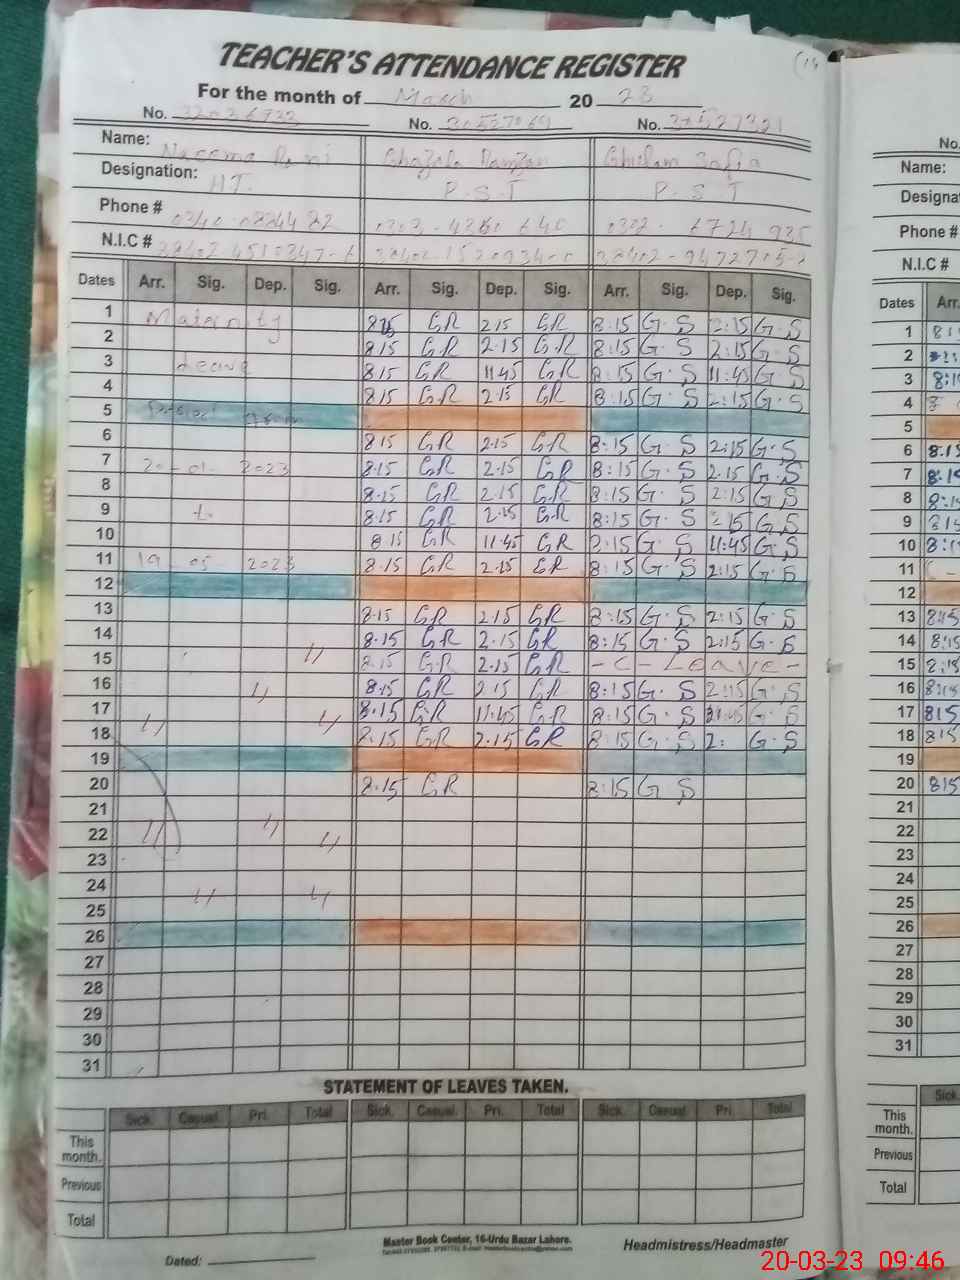 TEACHER'S ATTENDANCE REGISTER
For the month of March 20 23
No. No. 30527069 No. 30527321
Name: Ghazala Ramzan Ghulam Safia No.
Designation: HT. P.S.T P.S.T Name:
Phone # Designa
N.I.C # Phone #
N.I.C #
Dates Arr. Sig. Dep. Sig. Arr. Sig. Dep. Sig. Arr. Sig. Dep. Sig. Dates Arr.
1 Maternity 815 GR 2.15 GR 8:15 G.S 2:15 G.S 1
2 8.15 GR 2.15 GR 8:15 G.S 2:15 G.S 2
3 Leave 8.15 GR 11.45 GR 8:15 G.S 11:45 G.S 3 8:1
4 8.15 GR 2.15 GR 8:15 G.S 2:15 G.S 4
5 5
6 8.15 GR 2.15 GR 8:15 G.S 2:15 G.S 6 8.15
7 20-01-2023 8.15 GR 2.15 GR 8:15 G.S 2.15 G.S 7 8.15
8 8.15 GR 2.15 GR 8:15 G.S 2:15 G.S 8 8:15
9 to 8.15 GR 2.15 GR 8:15 G.S 2:15 G.S 9 815
10 8.15 GR 11.45 GR 8:15 G.S 11:45 G.S 10 8:1
11 19-05-2023 8.15 GR 2.15 GR 8:15 G.S 2:15 G.S 11
12 12
13 8.15 GR 2.15 GR 8:15 G.S 2:15 G.S 13 8:15
14 8.15 GR 2.15 GR 8:15 G.S 2:15 G.S 14 8:15
15 8.15 GR 2.15 GR - C - Leave - 15 8:15
16 8.15 GR 2.15 GR 8:15 G.S 2:15 G.S 16 8:15
17 8.15 GR 11.45 GR 8:15 G.S G.S 17 815
18 8.15 GR 2.15 GR 8:15 G.S 2: G.S 18 815
19 19
20 8.15 GR 8:15 G S 20 815
21 21
22 22
23 23
24 24
25 25
26 26
27 27
28 28
29 29
30 30
31 31
STATEMENT OF LEAVES TAKEN.
Sick. Casual. Pri. Total Sick. Casual. Pri. Total Sick. Casual. Pri. Total Sick.
This month. This month.
Previous Previous
Total Total
Dated: Master Book Center, 16-Urdu Bazar Lahore. Headmistress/Headmaster
20-03-23 09:46